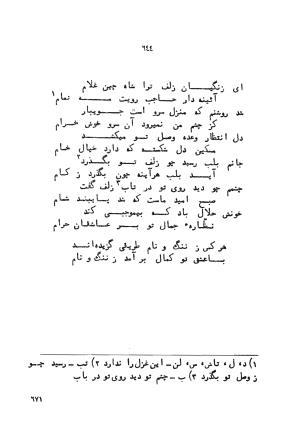 ٦٤٤
ای زنگیان زلف ترا شاه چین غلام
آئینه دار حاجب رویت مه تمام١
شد روشنم که منزل سرو است جویبار
کز چشم من نمیرود آن سرو خوش خرام
دل انتظار وعده وصل تو میکشد
مسکین دل شکسته که دارد خیال خام
جانم بلب رسید چو زلف تو بگذرد٢
آید بلب هرآینه چون بگذرد ز کام
چشمم چو دید روی تو در تاب٣ زلف گفت
صبح امید ماست که شد پایبند شام
خونش حلال باد که بیموجبی کند
نظاره جمال تو بر عاشقان حرام
هر کس ز ننگ و نام طریقی گزیده‌اند
با عشق تو کمال برآمد ز ننگ و نام
١) د، ل، تاش، س، لن – این غزل را ندارد ٢) تب – رسید چو
ز وصل تو بگذرد ٣) ب – چشم تو دید روی تو در باب
٦٧١